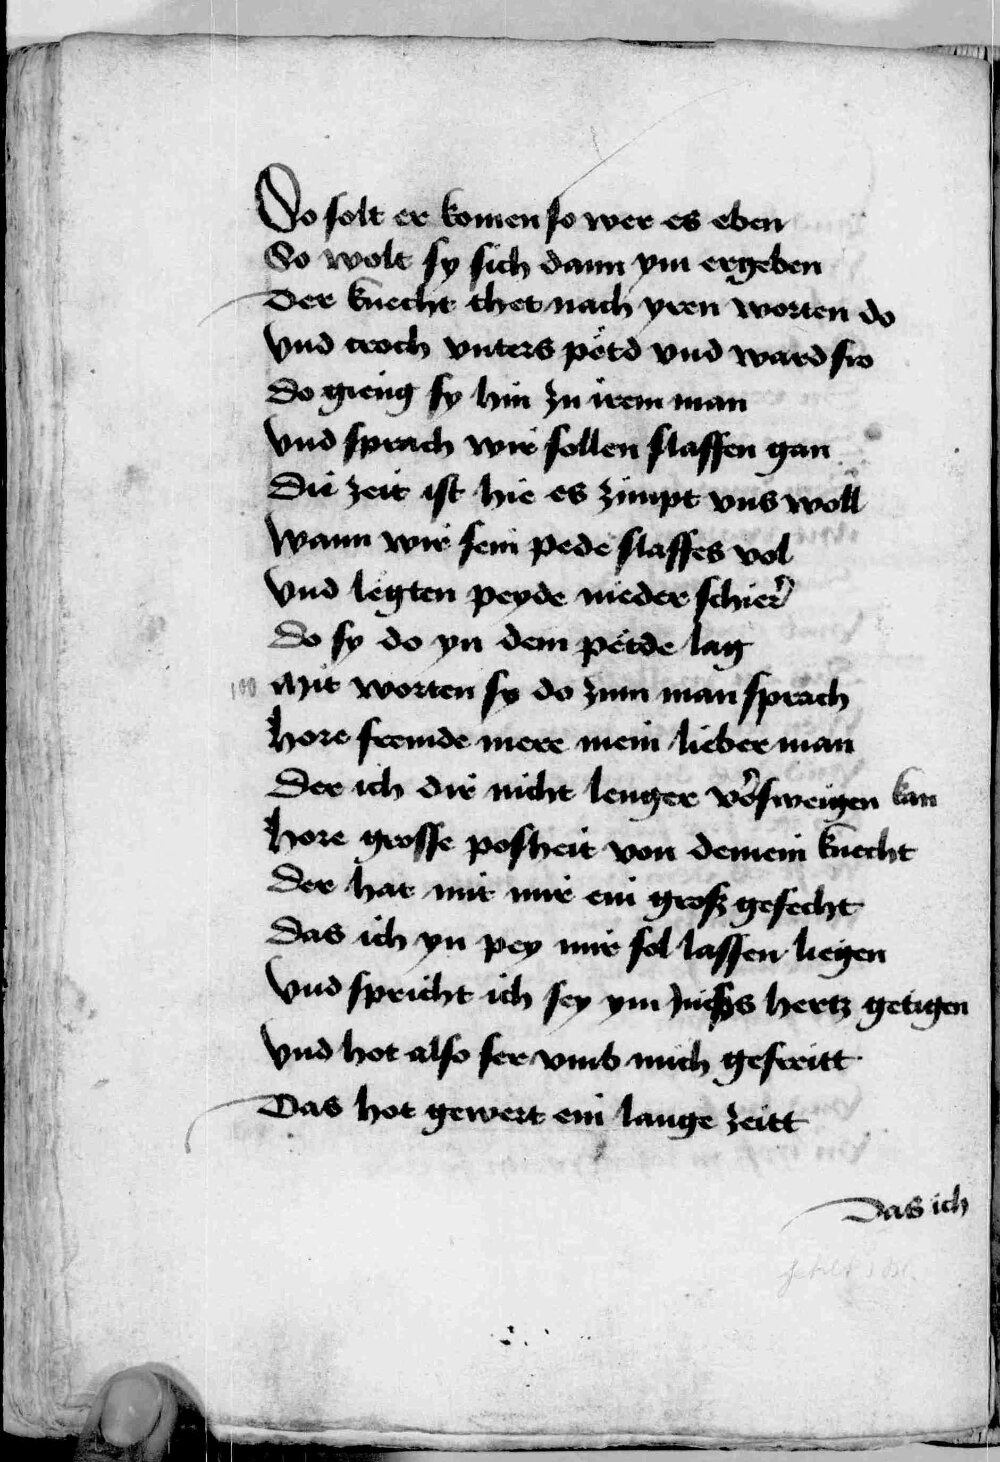 Do solt er komen so wer es eben
So wolt sy sich dann ym ergeben
Der knecht thet nach yren worten do
Vnd croch vnters pètd vnd ward fro
do gieng sy hin zu irem man
Vnd sprach wir sollen slaffen gan
Die zeit ist hie es zimpt vns woll
Wann wir sein pede slaffes vol
Vnd legten peyde nieder schier
Do sy do yn dem pètde lag
100 Mit worten sy do zum man sprach
Hore fremde mere mein lieber man
Der ich dir nicht lenger v̉sweigen kan
Hore grosse posheit von deinem knecht
Der hat mit mir ein grosz gefecht
Das ich yn pey mir sol lassen liegen
Vnd spricht ich sey ym hertz getigen
Vnd hot also ser vmb mich gestritt
Das hot gewert ein lange zeitt
Das ich
fehlt 1 Bl.